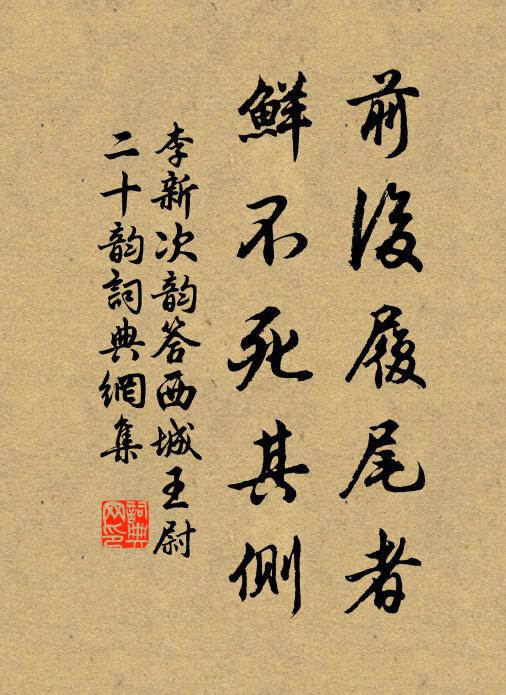 前後履尾者
鮮不死其側
李新次韵答西城王尉
二十韵詞典網集
詞典网印